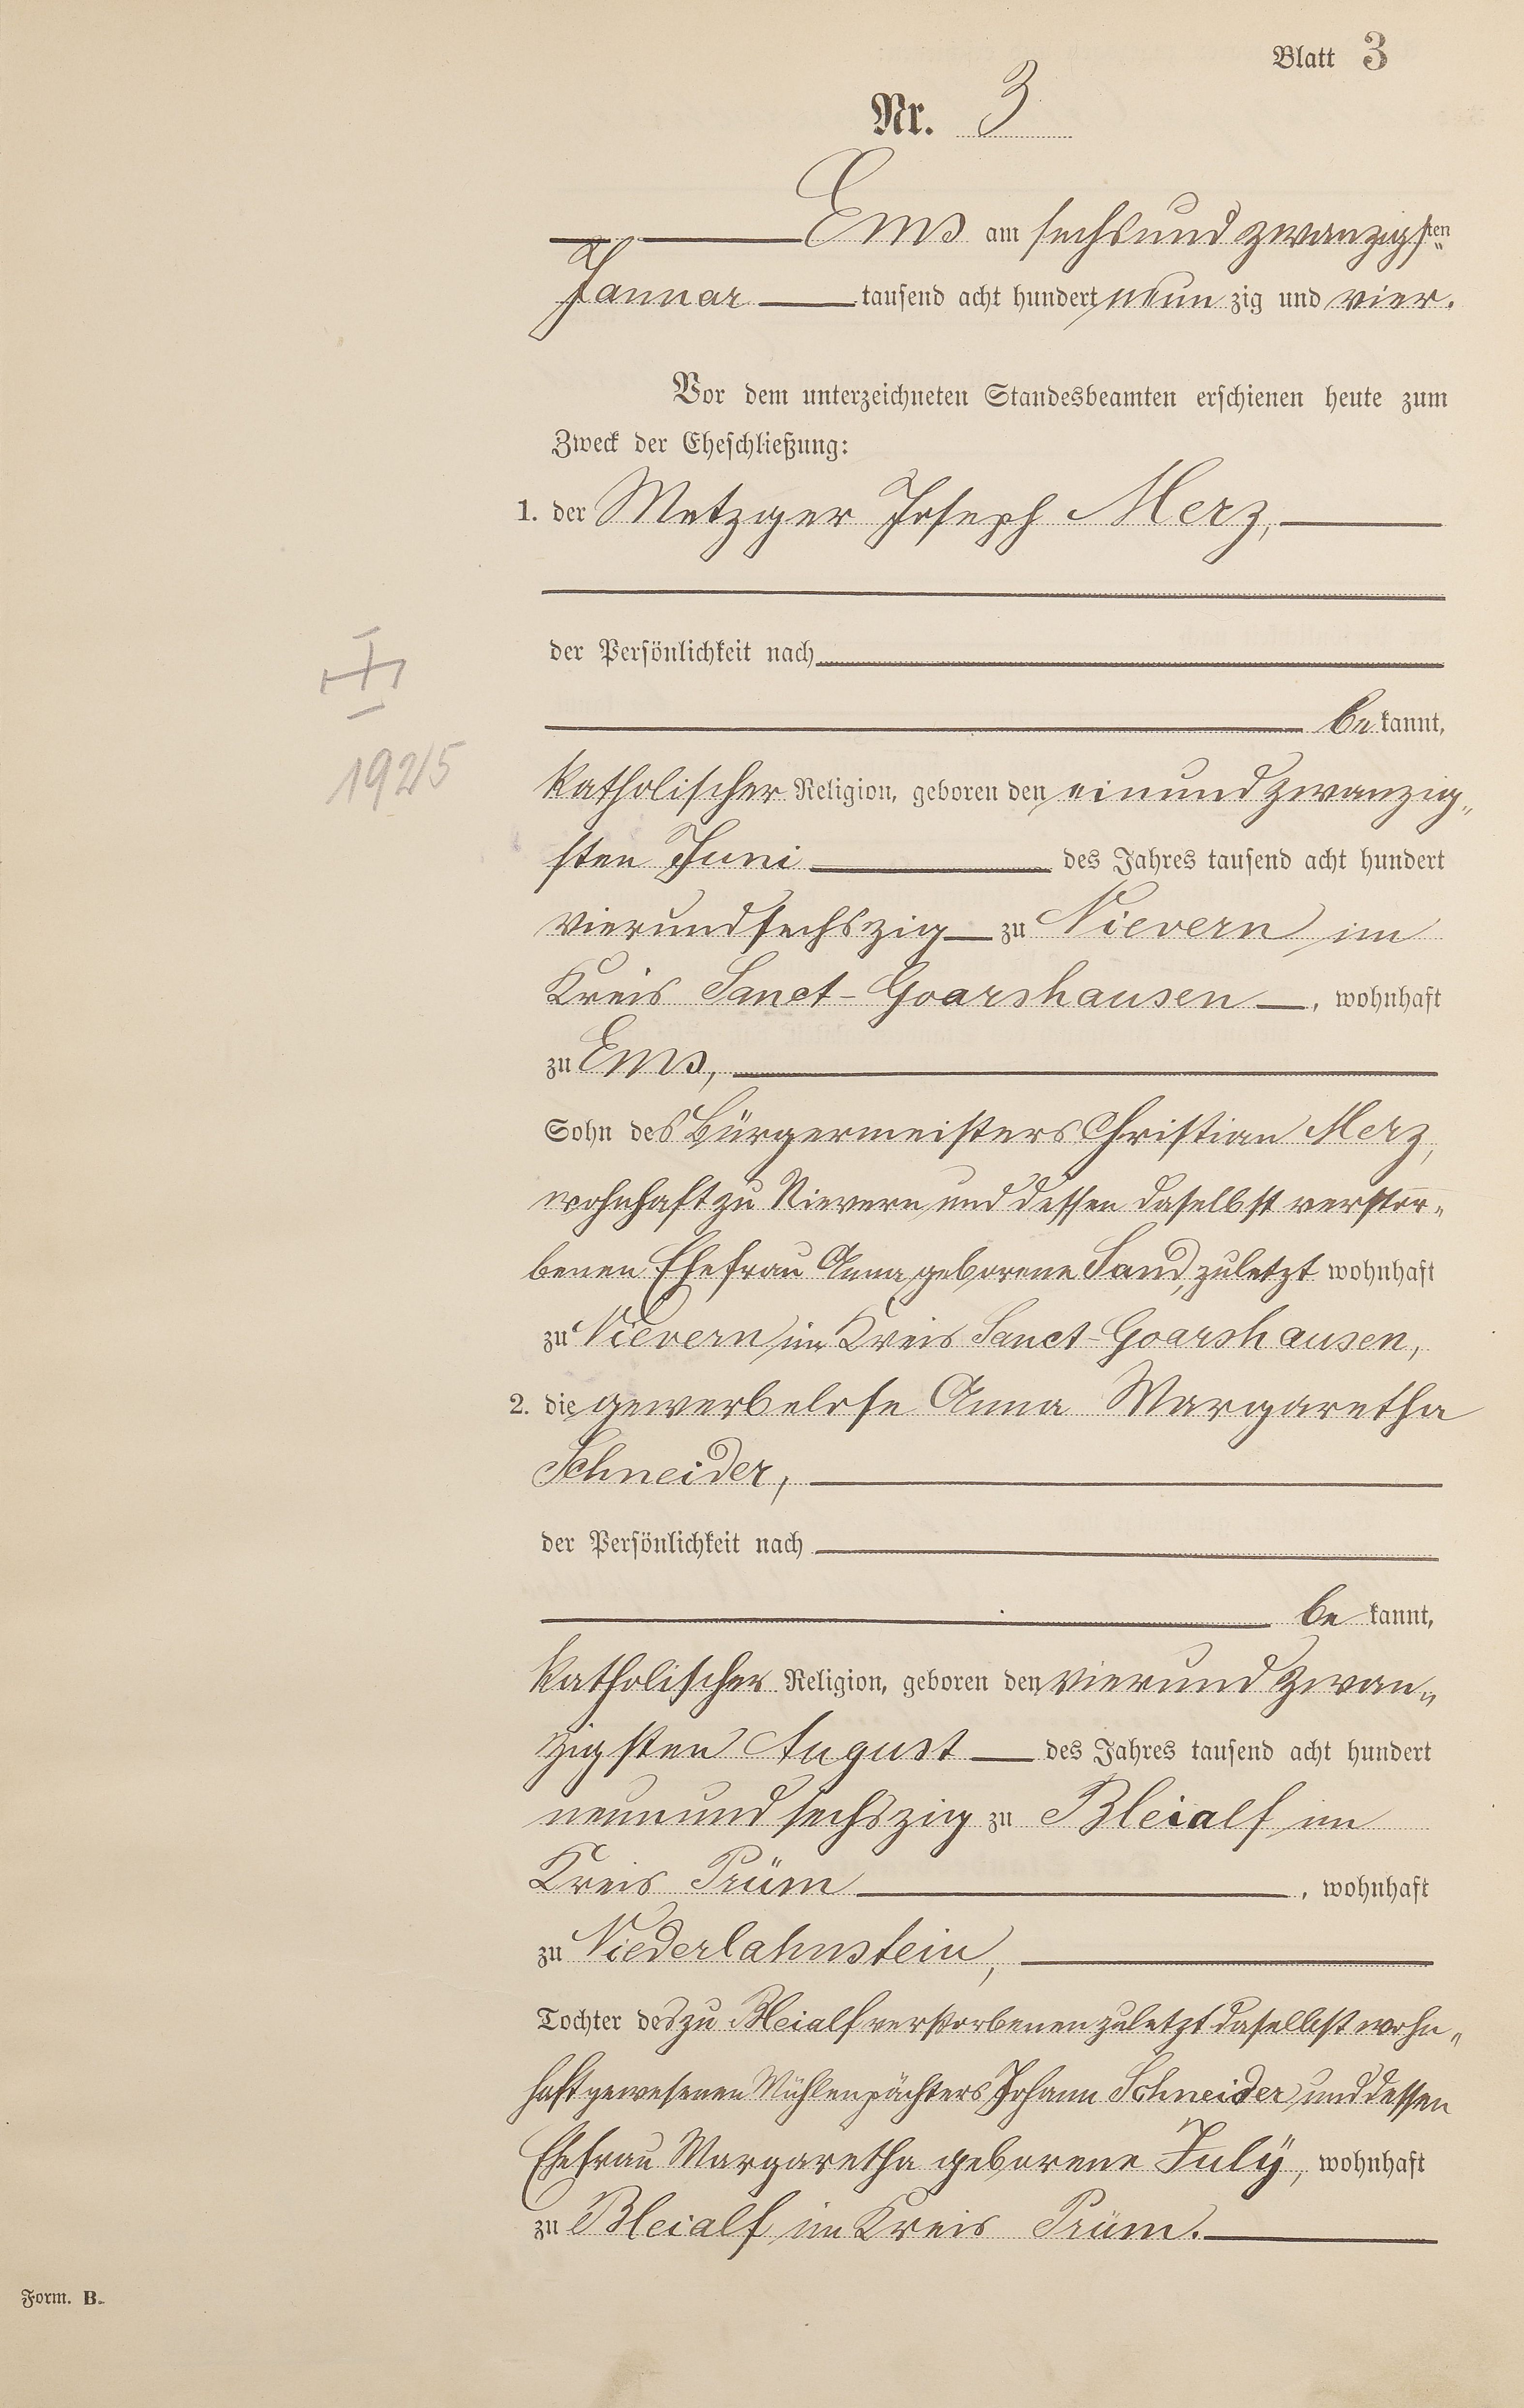 Blatt 3
Nr. 3
Ems am sechsundzwanzigsten
Januar tausend acht hundert neunzig und vier.
Vor dem unterzeichneten Standesbeamten erschienen heute zum
Zweck der Eheschließung:
1. der Metzger Joseph Merz,
der Persönlichkeit nach
bekannt,
katholischer Religion, geboren den einundzwanzig„
sten Juni des Jahres tausend acht hundert
vierundsechszig zu Nievern im
Kreis Sanct-Goarshausen, wohnhaft
zu Ems,
Sohn des Bürgermeisters Christian Merz,
wohnhaft zu Nievern und dessen daselbst verstor„
benen Ehefrau Anna geborene Sand, zuletzt wohnhaft
zu Nievern im Kreis Sanct-Goarshausen,
2. die gewerbelose Anna Margaretha
Schneider,
der Persönlichkeit nach
bekannt,
katholischer Religion, geboren den vierundzwan„
zigsten August des Jahres tausend acht hundert
neunundsechszig zu Bleialf im
Kreis Prüm, wohnhaft
zu Niederlahnstein,
Tochter des zu Bleialf verstorbenen zuletzt daselbst wohn„
haft gewesenen Mühlenpächters Johann Schneider und dessen
Ehefrau Margaretha geborene July, wohnhaft
zu Bleialf im Kreis Prüm.
1925
Form. B.